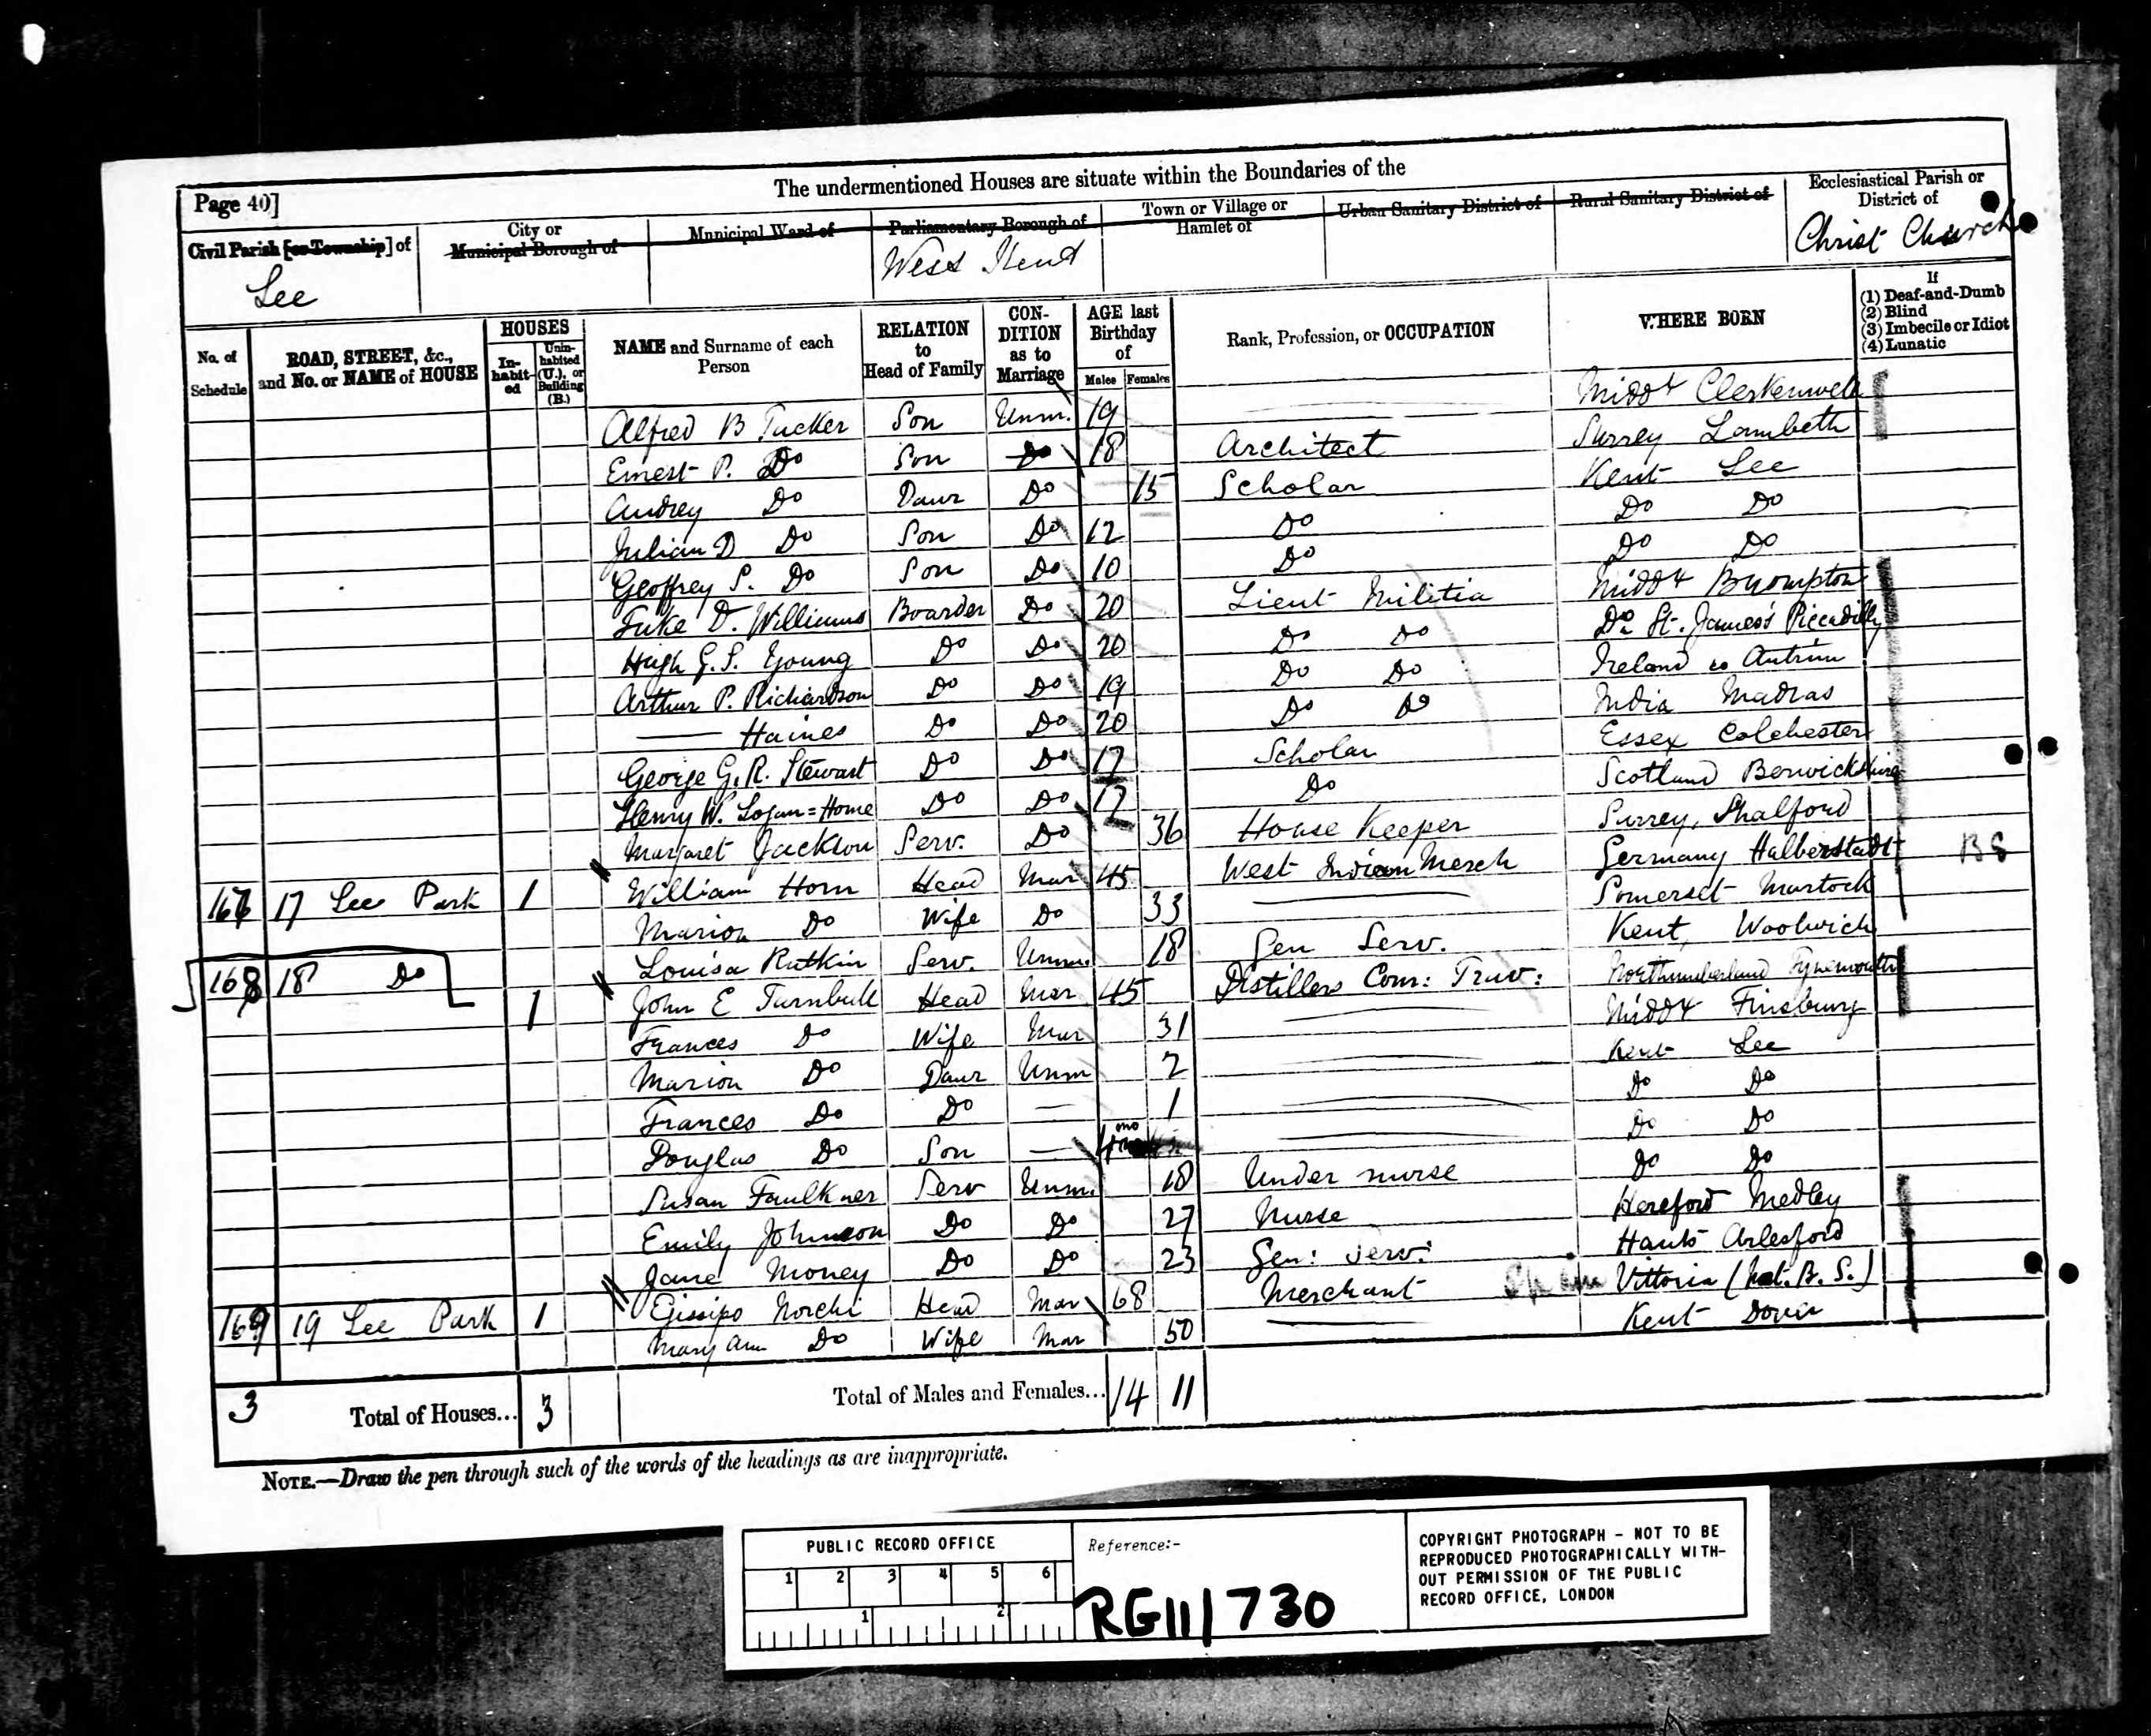 The undermentioned Houses are situate within the Boundaries of the
Page 40]
Civil Parish [or Township] of
City or Municipal Borough of
Municipal Ward of
Parliamentary Borough of
Town or Village or Hamlet of
Urban Sanitary District of
Rural Sanitary District of
Ecclesiastical Parish or District of
Lee
West Kent
Christ Church
No. of Schedule
ROAD, STREET, &c., and No. or NAME of HOUSE
HOUSES
In-habit-ed
Unin-habited (U.), or Building (B.)
NAME and Surname of each Person
RELATION to Head of Family
CON-DITION as to Marriage
AGE last Birthday of
Males Females
Rank, Profession, or OCCUPATION
WHERE BORN
If
(1) Deaf-and-Dumb
(2) Blind
(3) Imbecile or Idiot
(4) Lunatic
Alfred B Tucker Son Unm. 19 Middx Clerkenwell
Ernest P. Do Son Do 18 Architect Surrey Lambeth
Audrey Do Daur Do 15 Scholar Kent Lee
Julian D Do Son Do 12 Do Do Do
Geoffrey S. Do Son Do 10 Do Do Do
Luke D. Williams Boarder Do 20 Lieut Militia Middx Brompton
Hugh G. S. Young Do Do 20 Do Do Do St. James's Piccadilly
Arthur P. Richardson Do Do 19 Do Do Ireland co Antrim
— Haines Do Do 20 Do Do India Madras
George G. R. Stewart Do Do 17 Scholar Essex Colchester
Henry W. Logan=Home Do Do 17 Do Scotland Berwickshire
Margaret Jackson Serv. Do 36 House Keeper Surrey, Shalford
17 Lee Park 1 William Horn Head Mar 45 West Indian Merch Germany Halberstadt BS
Marion Do Wife Do 33 Somerset Martock
Louisa Rutkin Serv. Unm. 18 Gen Serv. Kent Woolwich
168 18 Do 1 John E Turnbull Head Mar 45 Distillers Com: Trav: Northumberland Tynemouth
Frances Do Wife Mar 31 Middx Finsbury
Marion Do Daur Unm 2 Kent Lee
Frances Do Do — 1 Do Do
Douglas Do Son — 4 mo Do Do
Susan Faulkner Serv Unm. 18 Under nurse Do Do
Emily Johnson Do Do 27 Nurse Hereford Medley
Jane Money Do Do 23 Gen: Serv: Hants Arlesford
169 19 Lee Park 1 Norchi Head Mar 68 Merchant Vittoria (Nat. B. S.)
Mary Ann Do Wife Mar 50 Kent Dover
3 Total of Houses... 3 Total of Males and Females... 14 11
NOTE.—Draw the pen through such of the words of the headings as are inappropriate.
PUBLIC RECORD OFFICE
1 2 3 4 5 6
1 2
Reference:-
RG11/730
COPYRIGHT PHOTOGRAPH - NOT TO BE
REPRODUCED PHOTOGRAPHICALLY WITH-
OUT PERMISSION OF THE PUBLIC
RECORD OFFICE, LONDON